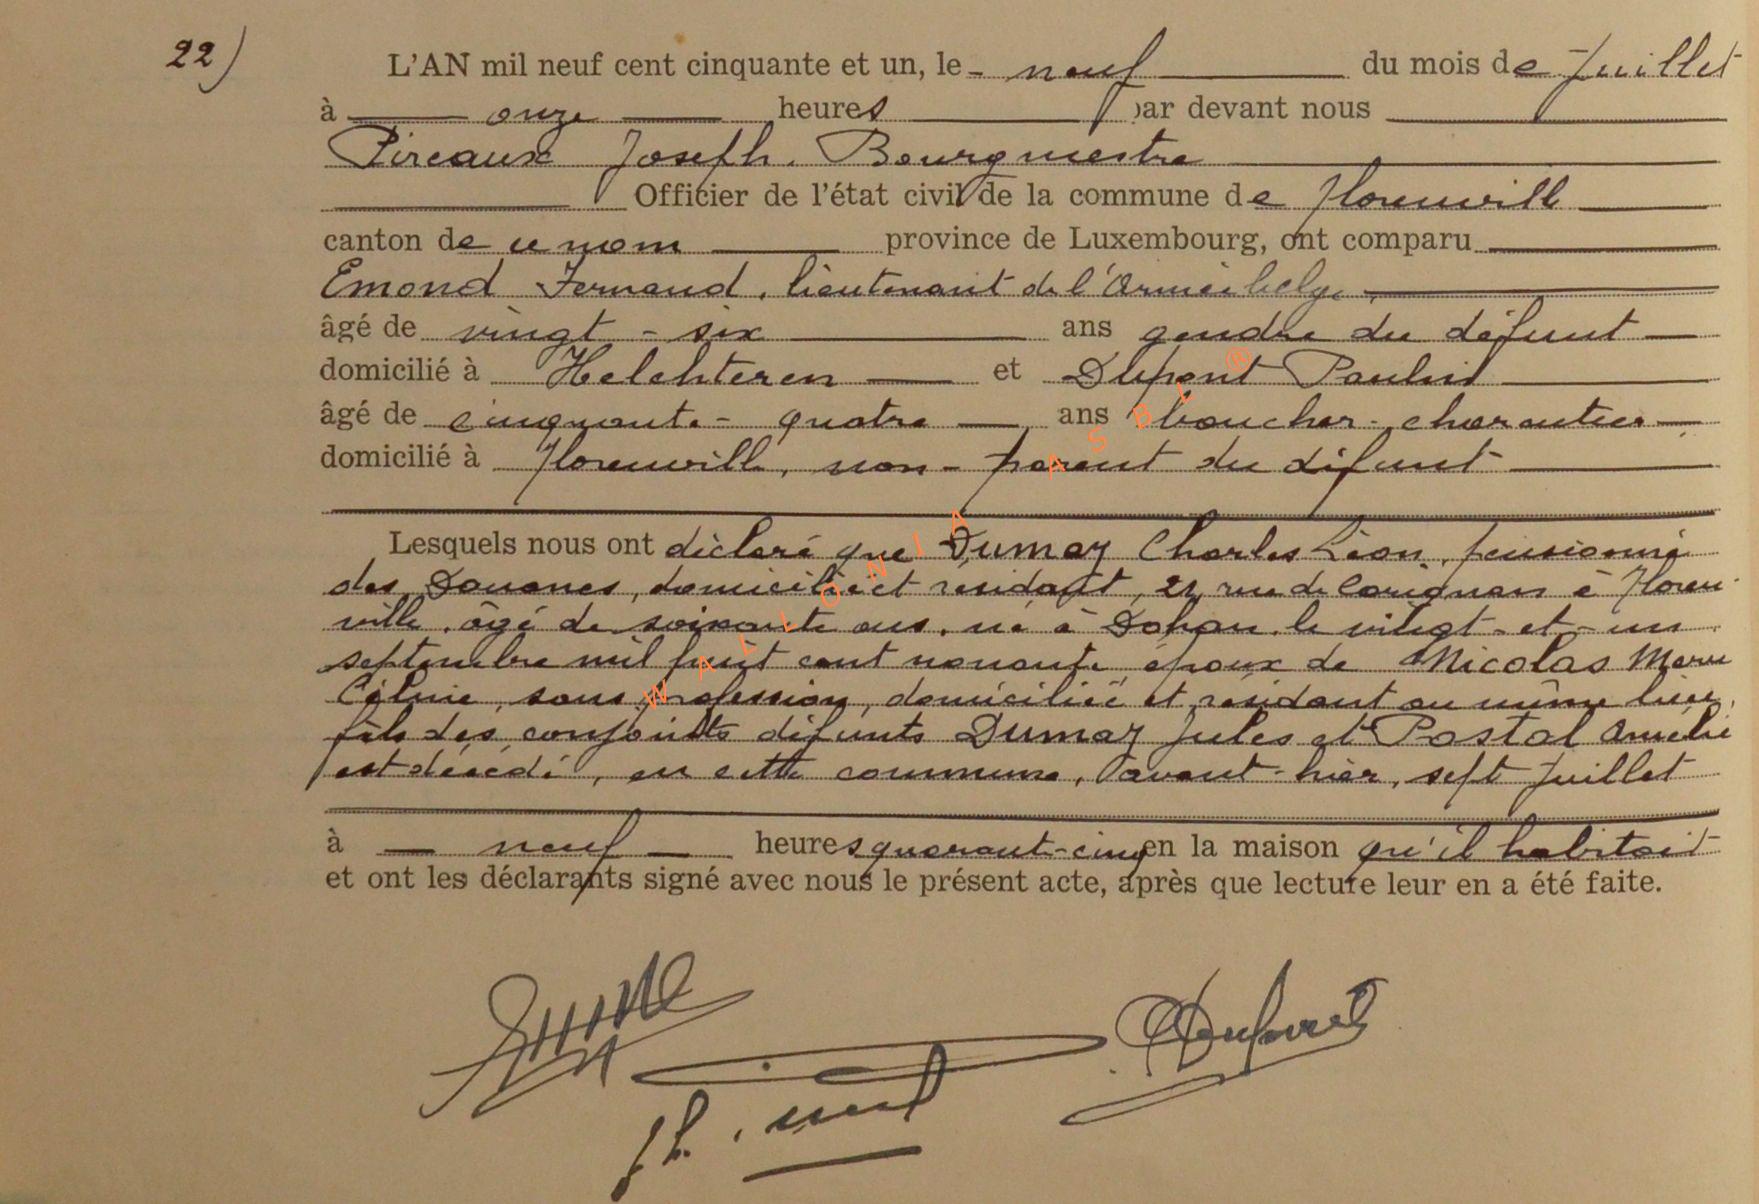 22)
L'AN mil neuf cent cinquante et un, le neuf du mois de Juillet
à onze heures par devant nous
Pireaux Joseph. Bourgmestre
Officier de l'état civil de la commune de Florenville
canton de ce nom province de Luxembourg, ont comparu
Emond Fernand, lieutenant de l'Armée belge,
âgé de vingt-six ans gendre du défunt
domicilié à Helchteren et Dupont Paulin
âgé de cinquante-quatre ans boucher-charcutier
domicilié à Florenville, non-parent du défunt
Lesquels nous ont déclaré que Dumay Charles Léon, pensionné
des Douanes, domicilié et résidant, 21, rue de Carignan à Floren-
ville, âgé de soixante ans, né à Dohan, le vingt-et-un
septembre mil huit cent nonante, époux de Nicolas Marie
Célinie, sans profession, domiciliée et résidant au même lieu,
fils des conjoints défunts Dumay Jules et Postal Amélie
est décédé, en cette commune, avant-hier, sept Juillet
à neuf heures quarante-cinq en la maison qu'il habitait
et ont les déclarants signé avec nous le présent acte, après que lecture leur en a été faite.
WALLONIA ASBL ®